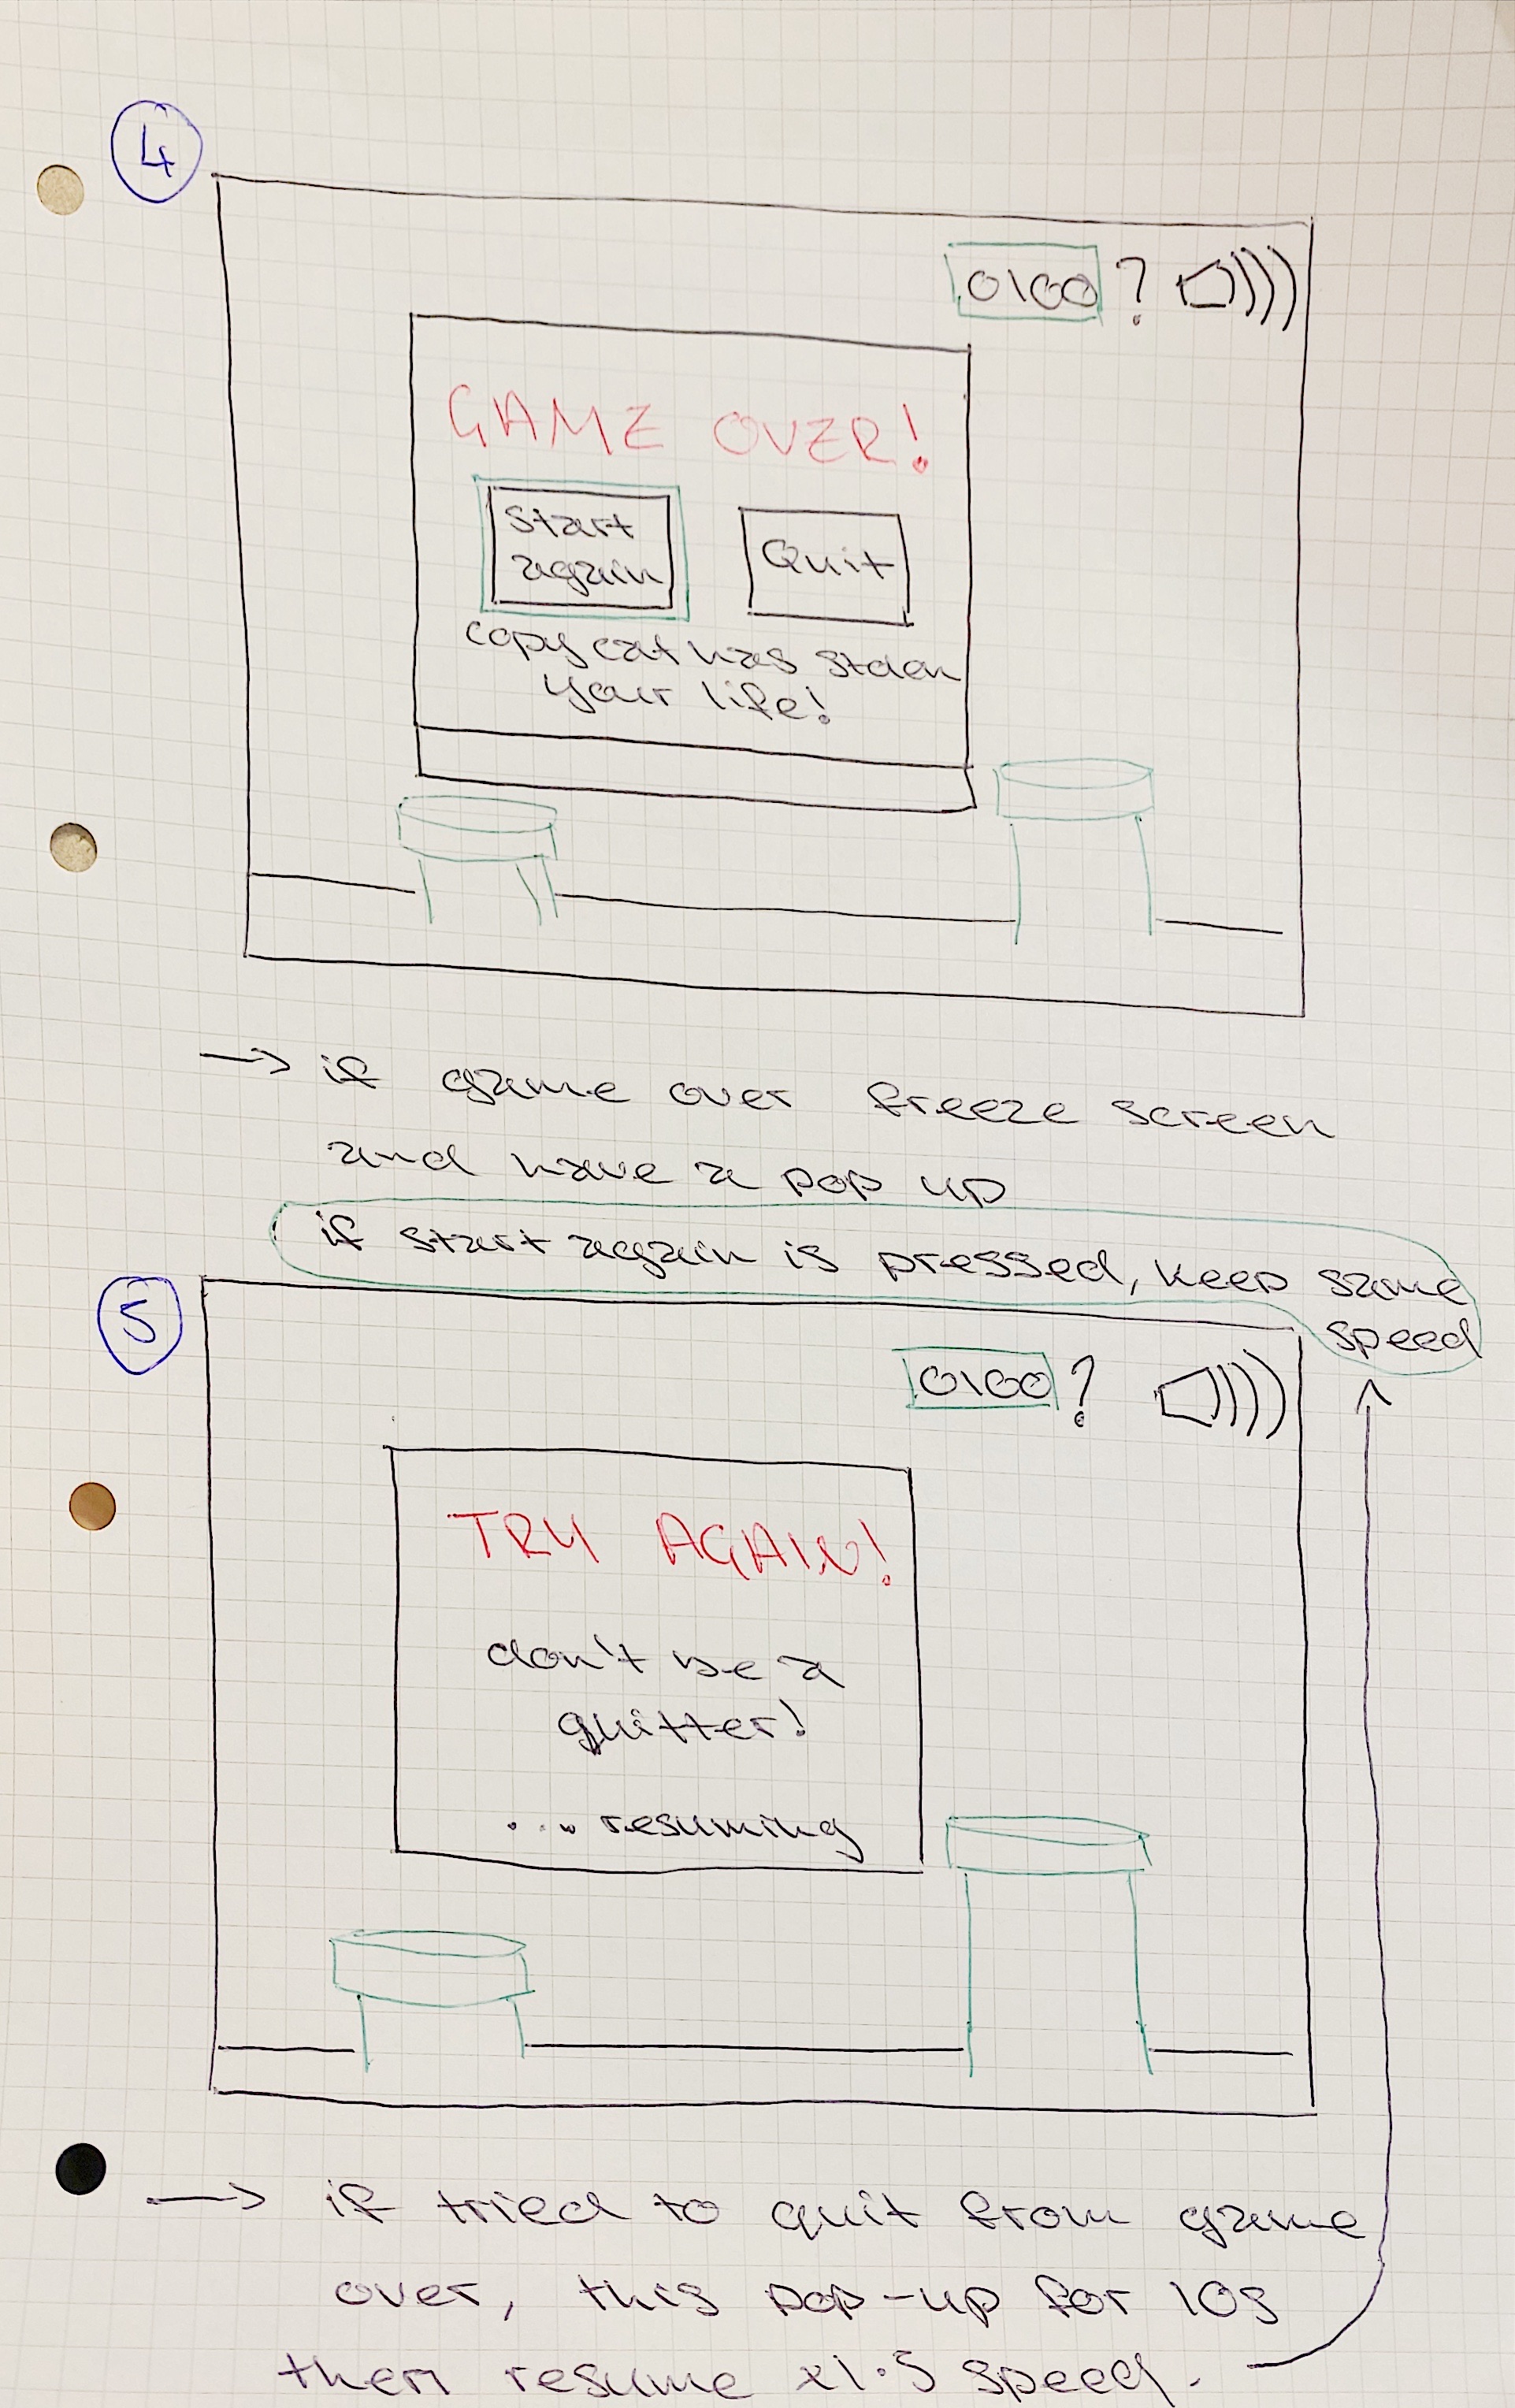 4
0100 ?
GAME OVER!
start
again
Quit
copy cat has stolen
your life!
→ if game over freeze screen
and have a pop up
if start again is pressed, keep same
speed
5
0100 ?
TRY AGAIN!
don't be a
quitter!
... resuming
→ if tried to quit from game
over, this pop-up for 10s
then resume x1.5 speed.